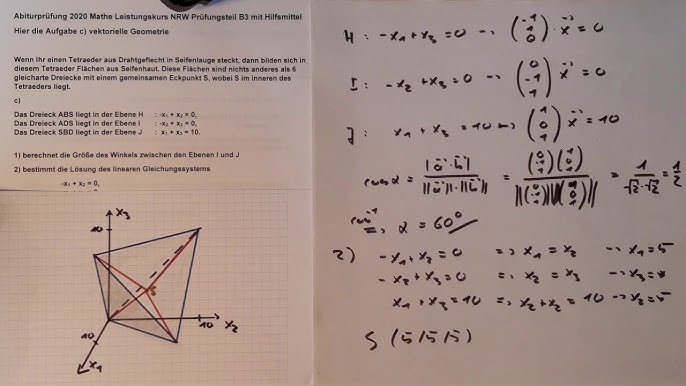 Abiturprüfung 2020 Mathe Leistungskurs NRW Prüfungsteil B3 mit Hilfsmittel
Hier die Aufgabe c) vektorielle Geometrie
Wenn Ihr einen Tetraeder aus Drahtgeflecht in Seifenlauge steckt, dann bilden sich in
diesem Tetraeder Flächen aus Seifenhaut. Diese Flächen sind nichts anderes als 6
gleicharte Dreiecke mit einem gemeinsamen Eckpunkt S, wobei S im inneren des
Tetraeders liegt.
c)
Das Dreieck ABS liegt in der Ebene H : -x₁ + x₂ = 0,
Das Dreieck ADS liegt in der Ebene I : -x₂ + x₃ = 0,
Das Dreieck SBD liegt in der Ebene J : x₁ + x₃ = 10.
1) berechnet die Größe des Winkels zwischen den Ebenen I und J
2) bestimmt die Lösung des linearen Gleichungssystems
-x₁ + x₂ = 0,
x₃
10
S
10 x₂
10
x₁
H : -x₁ + x₃ = 0 → (-1 1 0) x⃗ = 0
I : -x₂ + x₃ = 0 → (0 -1 1) x⃗ = 0
J : x₁ + x₃ = 10 → (1 0 1) x⃗ = 10
cos α = |a⃗ · b⃗| / ||a⃗|| · ||b⃗|| = (0 -1 1)(1 0 1) / ||(0 -1 1)|| ||(1 0 1)|| = 1/√2·√2 = 1/2
cos⁻¹ ⇒ α = 60°
2) -x₁ + x₂ = 0 ⇒ x₁ = x₂ → x₁ = 5
-x₂ + x₃ = 0 ⇒ x₂ = x₃ → x₃ =
x₁ + x₃ = 10 ⇒ x₂ + x₂ = 10 → x₂ = 5
S (5/5/5)